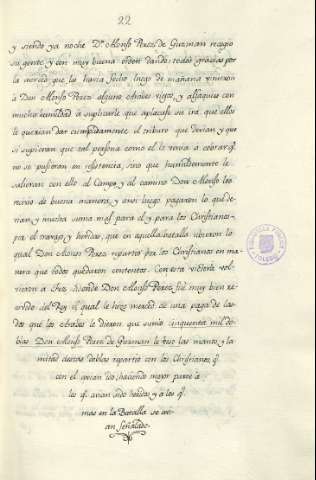 22
y siendo ya noche Dⁿ Alonso Perez de Guzman recogio
su gente, y con muy buena orden dando todos gracias por
la merced que les havia fecho luego de mañana vinieron
a Don Alonso Perez algunos Arabes viejos, y alfaquies con
mucha humildad a suplicarle que aplacase su ira, que ellos
le querian dar cumplidamente el tributo que devian, y que
si supieran que tal persona como el le venia a cobrar q.
no se pusieran en resistencia, sino que humildemente le
salieran con ello al Campo, y al camino Don Alonso los
recivio de buena manera, y ansi luego pagaron lo que de-
vian, y mucha suma mas para el y para los Christianos
por el travajo, y heridas, que en aquella batalla ubieron lo
qual Don Alonso Perez repartio por los Christianos en ma-
nera que todos quedaron contentos. Con esta victoria vol-
vieron a Fez donde Don Alonso Perez fue muy bien re-
cevido del Rey el qual le hizo merced de una paga de las
dos que los Arabes le dieron que sumio cinquenta mil do-
blas Don Alonso Perez de Guzman le beso las manos, y la
mitad destas doblas repartio con los Christianos q.
con el avian ido; haciendo mayor parte a
los q. avian sido heridos y a los q.
mas en la Batalla se avi-
an señalado
BIBLIOTECA PUBLICA
TOLEDO